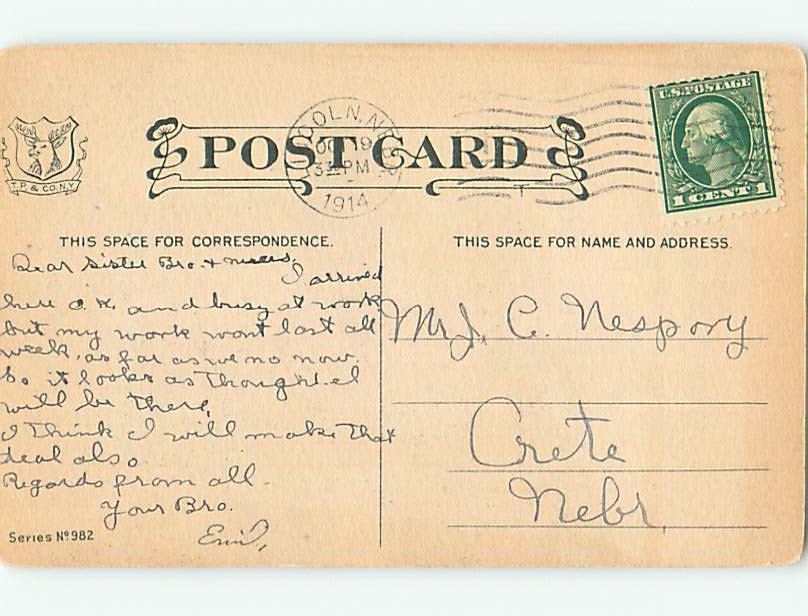 POST CARD
T.P. & CO. N.Y.
LINCOLN, NEBR.
OCT 19
3 PM
1914
U.S. POSTAGE
1 CENT 1
THIS SPACE FOR CORRESPONDENCE.
Dear Sister Bro. + nieces,
I arrived
here O.K. and busy at work
but my work wont last all
week, as far as we no now.
So it looks as thought. I
will be there,
I think I will make that
deal also
Regards from all.
Your Bro.
Emil,
Series Nº 982
THIS SPACE FOR NAME AND ADDRESS.
Mr J. C. Nespory
Crete
Nebr,